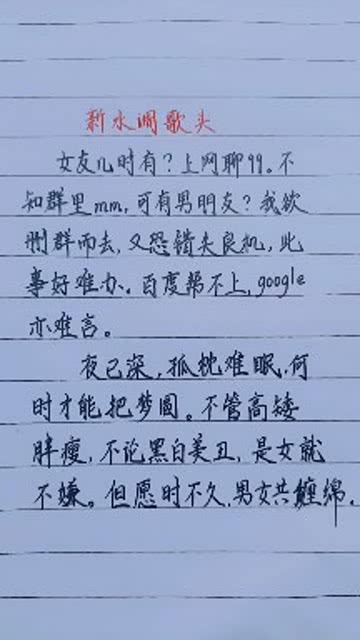 新水调歌头
女友几时有？上网聊qq。不
知群里mm，可有男朋友？我欲
删群而去，又恐错失良机，此
事好难办。百度帮不上，google
亦难言。
夜已深，孤枕难眠，何
时才能把梦圆。不管高矮
胖瘦，不论黑白美丑，是女就
不嫌。但愿时不久，男女共缠绵。